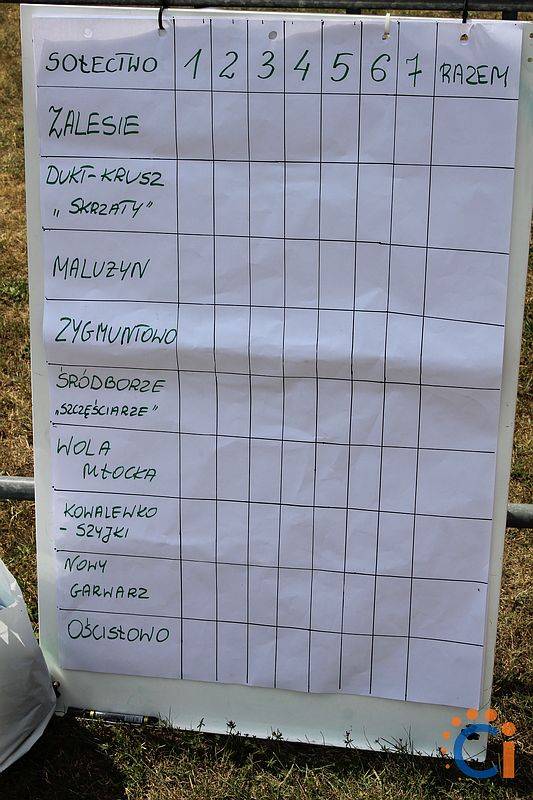 SOŁECTWO 1 2 3 4 5 6 7 RAZEM
ZALESIE
DUKT-KRUSZ
„SKRZATY”
MALUŻYN
ZYGMUNTOWO
ŚRÓDBORZE
„SZCZĘŚCIARZE”
WOLA
MŁOCKA
KOWALEWKO
- SZYJKI
NOWY
GARWARZ
OŚCISŁOWO
Ci